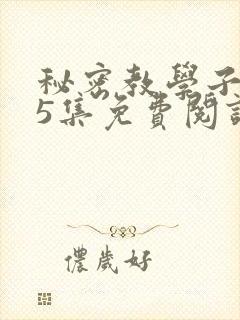 秘密教學子
5集免費閱
儂歲好